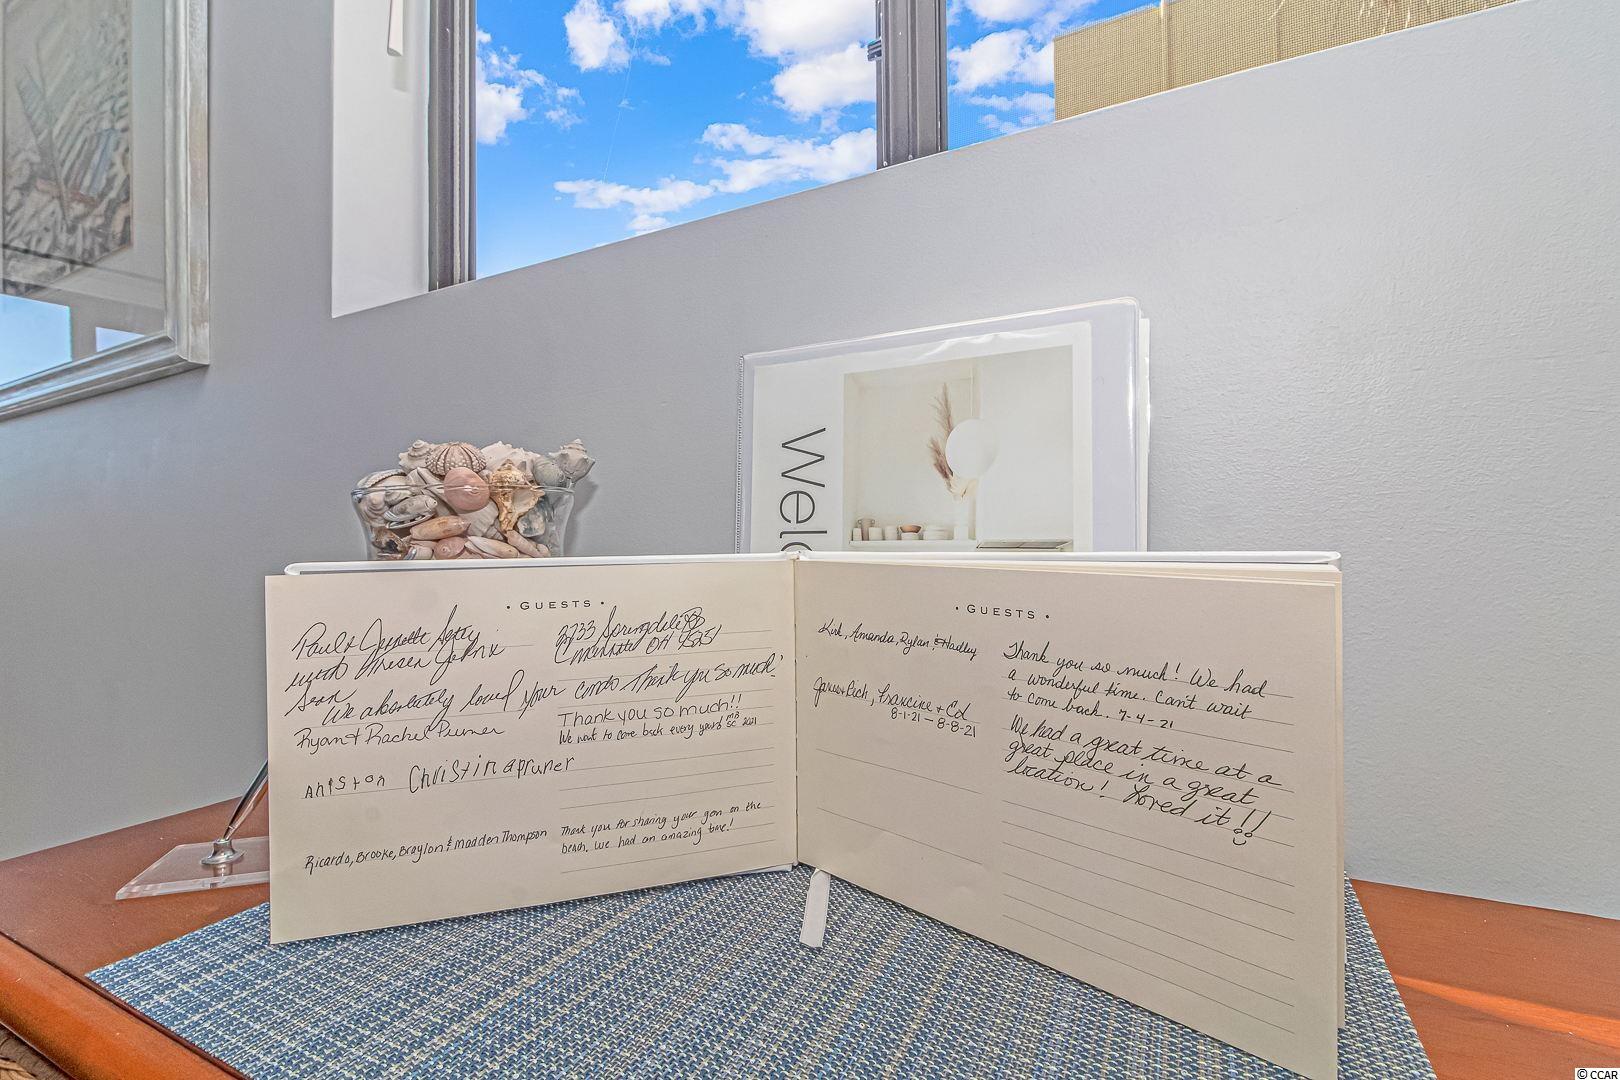 Welc
• GUESTS •
Paul & Jennette
with
Sean
Springdale Rd
Cincinnati OH 45251
We absolutely loved your condo Thank you so much!
Ryan & Rachel Pruner
Thank you so much!!
We want to come back every year! MB SC 2021
Aniston Christina pruner
Ricardo, Brooke, Braylon & Madden Thompson
Thank you for sharing your gem on the
beach. We had an amazing time!
• GUESTS •
Kirk, Amanda, Rylan, & Hadley
Thank you so much! We had
a wonderful time. Can't wait
to come back. 7-4-21
Rich, Francine + Ed
8-1-21 - 8-8-21
We had a great time at a
great place in a great
location! Loved it!!
© CCAR